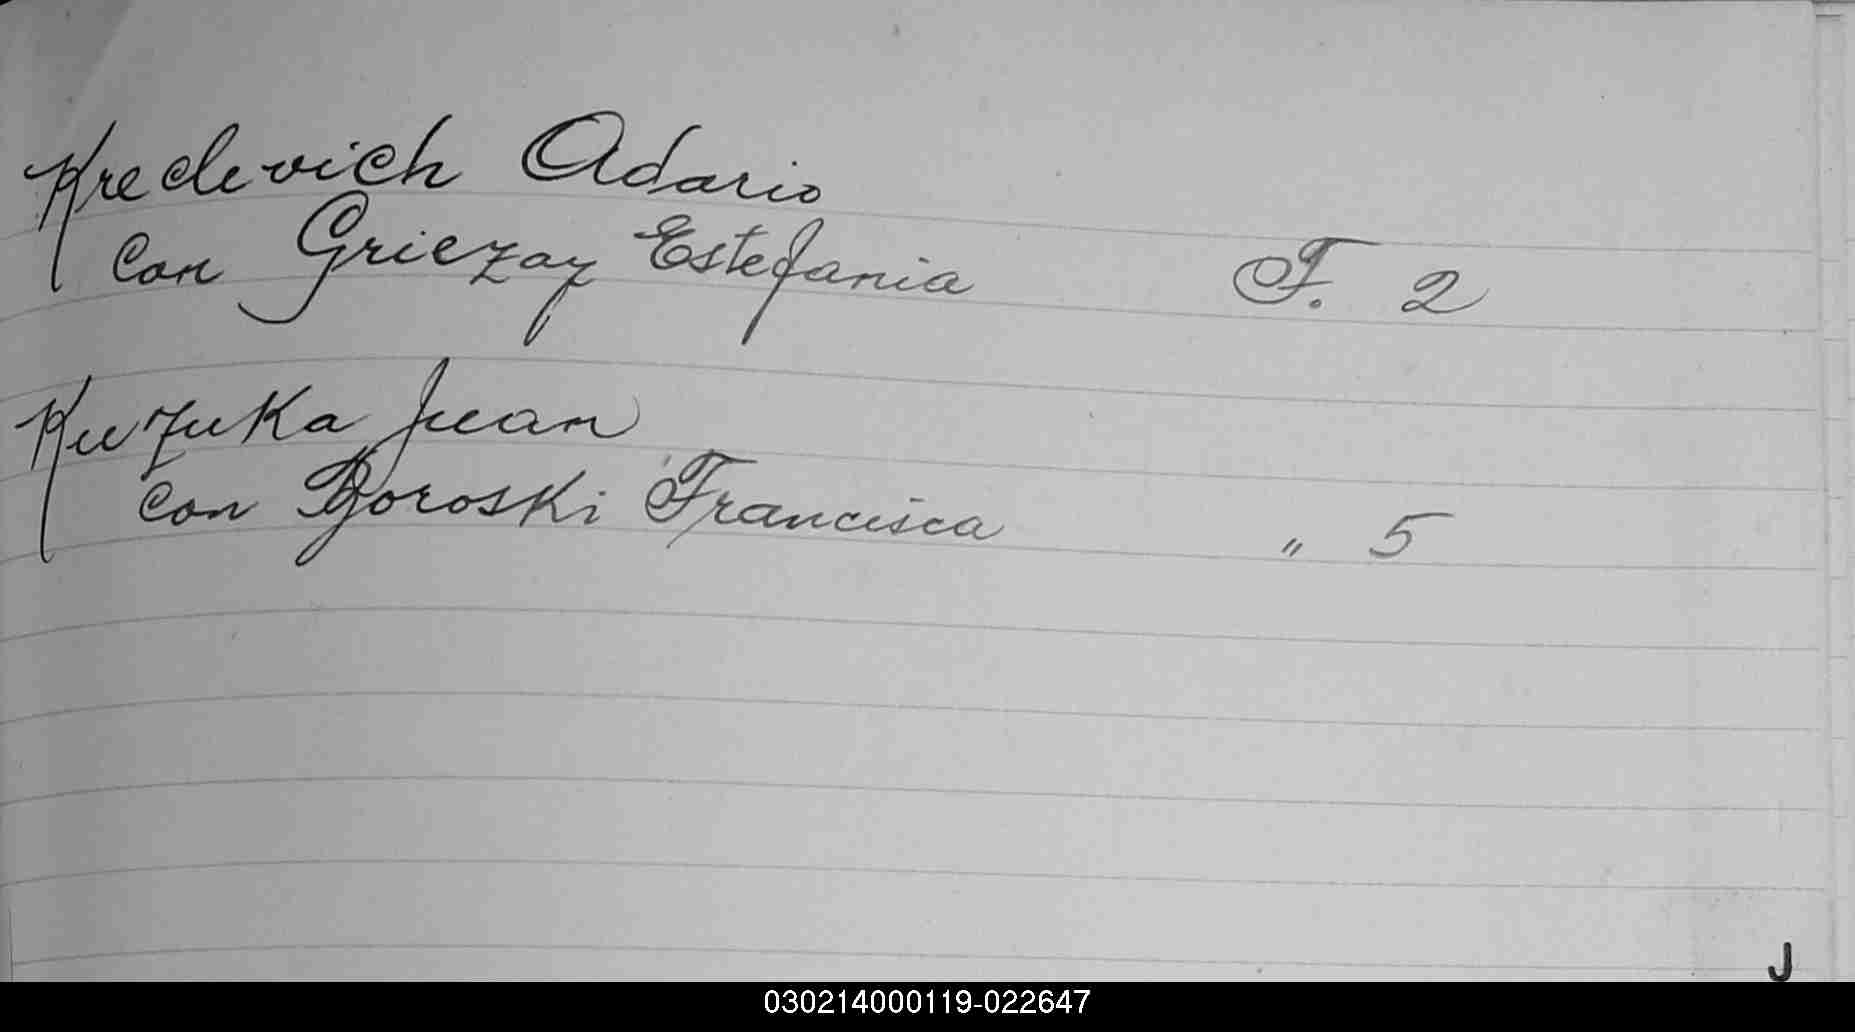 Kreclevich Adario
Con Griezay Estefania F. 2
Kuzuka Juan
Con Boroski Francisca " 5
J
030214000119-022647